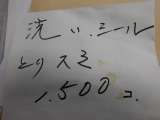 洗い.シール
とりスミ
1.500コ.